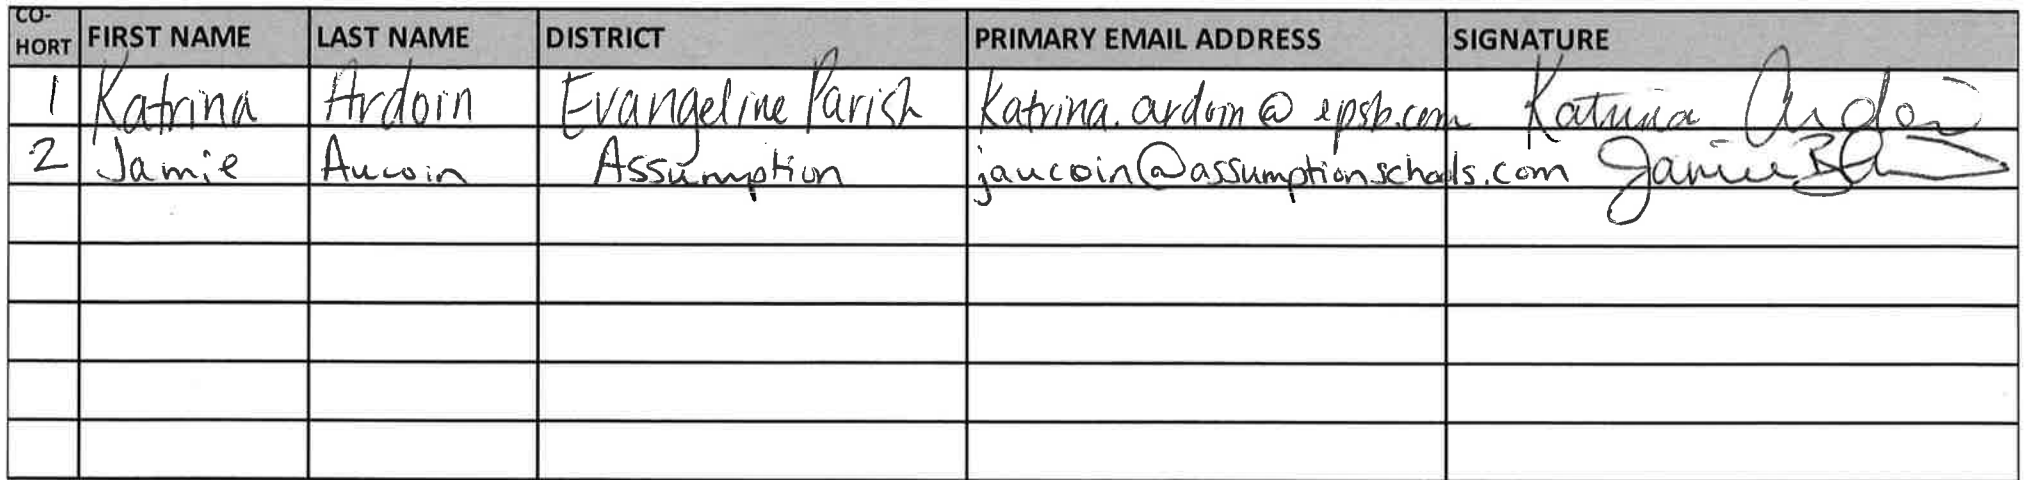 CO-HORT FIRST NAME LAST NAME DISTRICT PRIMARY EMAIL ADDRESS SIGNATURE
1 Katrina Ardoin Evangeline Parish Katrina.ardoin@epsb.com Katrina Ardoin
2 Jamie Aucoin Assumption jaucoin@assumptionschools.com Jamie